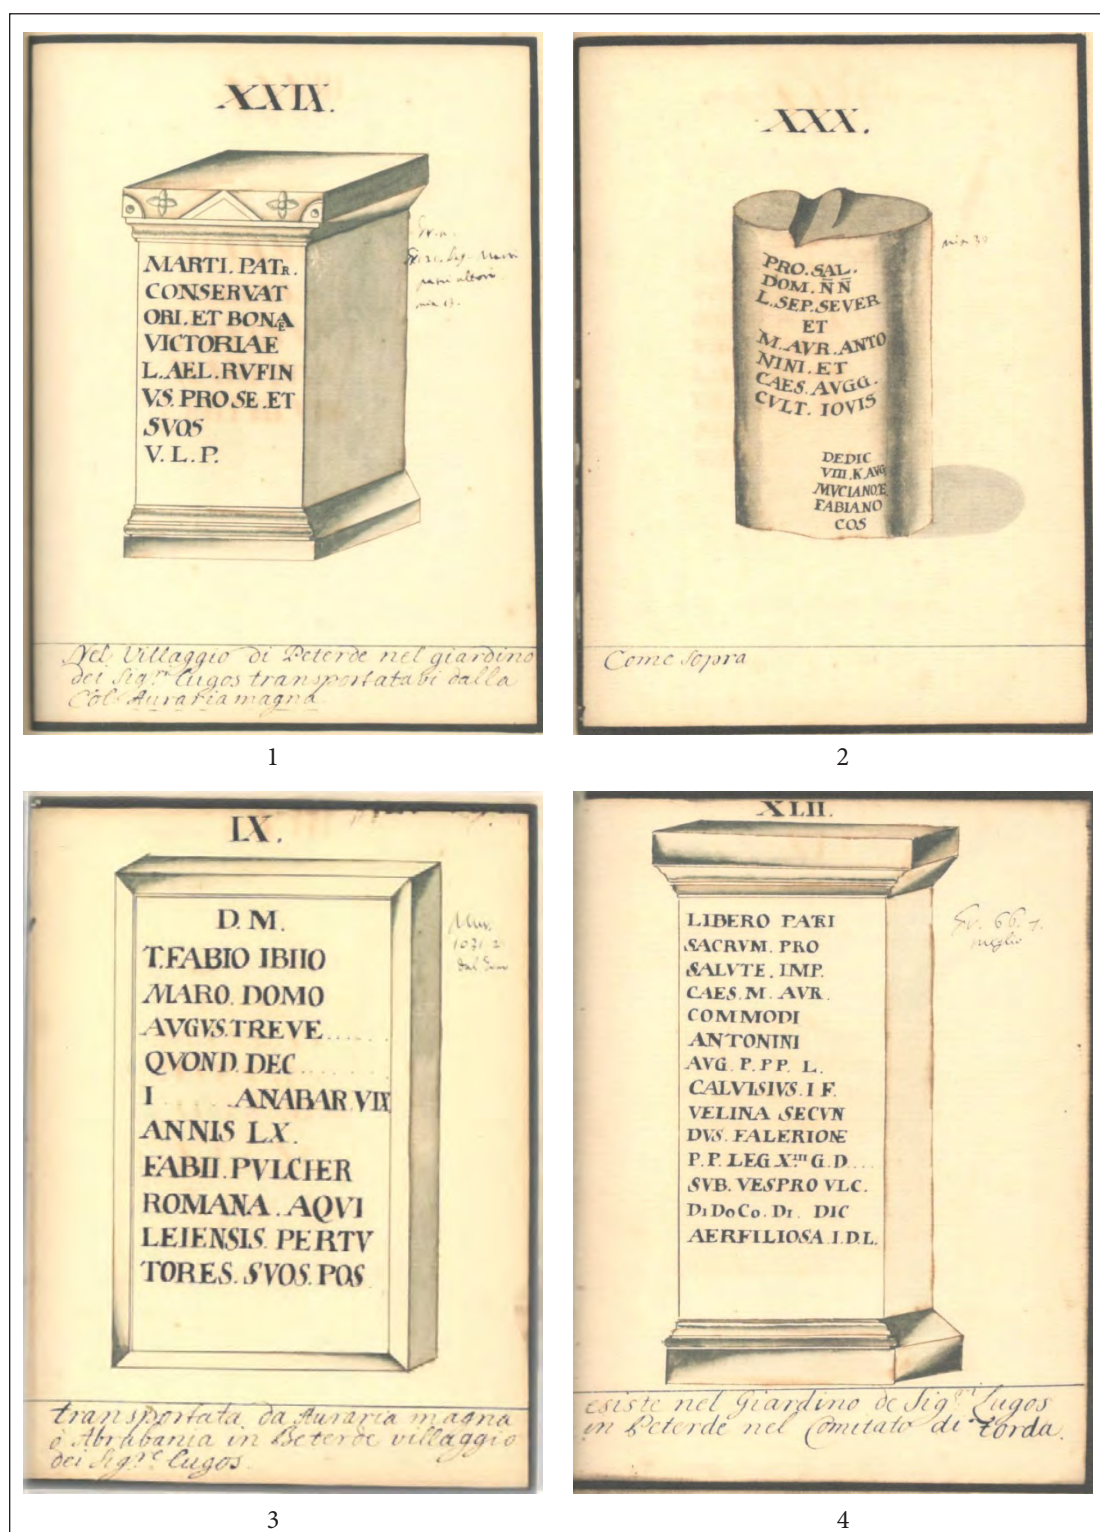 XXIX.
MARTI. PATR.
CONSERVAT
ORI. ET BONAE
VICTORIAE
L. AEL. RVFIN
VS. PRO SE. ET
SVOS
V. L. P.
Nel Villaggio di Peterde nel giardino
dei Sig.ri Lugos transportatavi dalla
Col. Auraria magna.
1
XXX.
min 30
PRO. SAL.
DOM. N̄ N̄
L. SEP. SEVER
ET
M. AVR. ANTO
NINI. ET
CAES. AVGG.
CVLT. IOVIS
DEDIC
VIII. K. AVG
MVCIANO. E
FABIANO
COS
Come sopra
2
IX.
D. M.
T. FABIO IBIIO
MARO. DOMO
AVGVS. TREVE......
QVOND. DEC.......
I ..... ANABAR. VIX
ANNIS LX.
FABII. PVLCIER
ROMANA. AQVI
LEIENSIS. PERTV
TORES. SVOS. POS
Mur.
1071 2
transportata da Auraria magna
ò Abrabania in Beterde villaggio
dei Sig.ri Lugos.
3
XLII.
LIBERO PATRI
SACRVM. PRO
SALVTE. IMP.
CAES. M. AVR.
COMMODI
ANTONINI
AVG. P. PP. L.
CALVISIVS. I F.
VELINA SECVN
DVS. FALERIONE
P. P. LEG. X.III G. D....
SVB. VESPRO VLC.
DI DO CO. DI. DIC
AERFILIOSA. I. D. L.
66. 7.
meglio
esiste nel Giardino de Sig.ri Lugos
in Peterde nel Comitato di Torda.
4